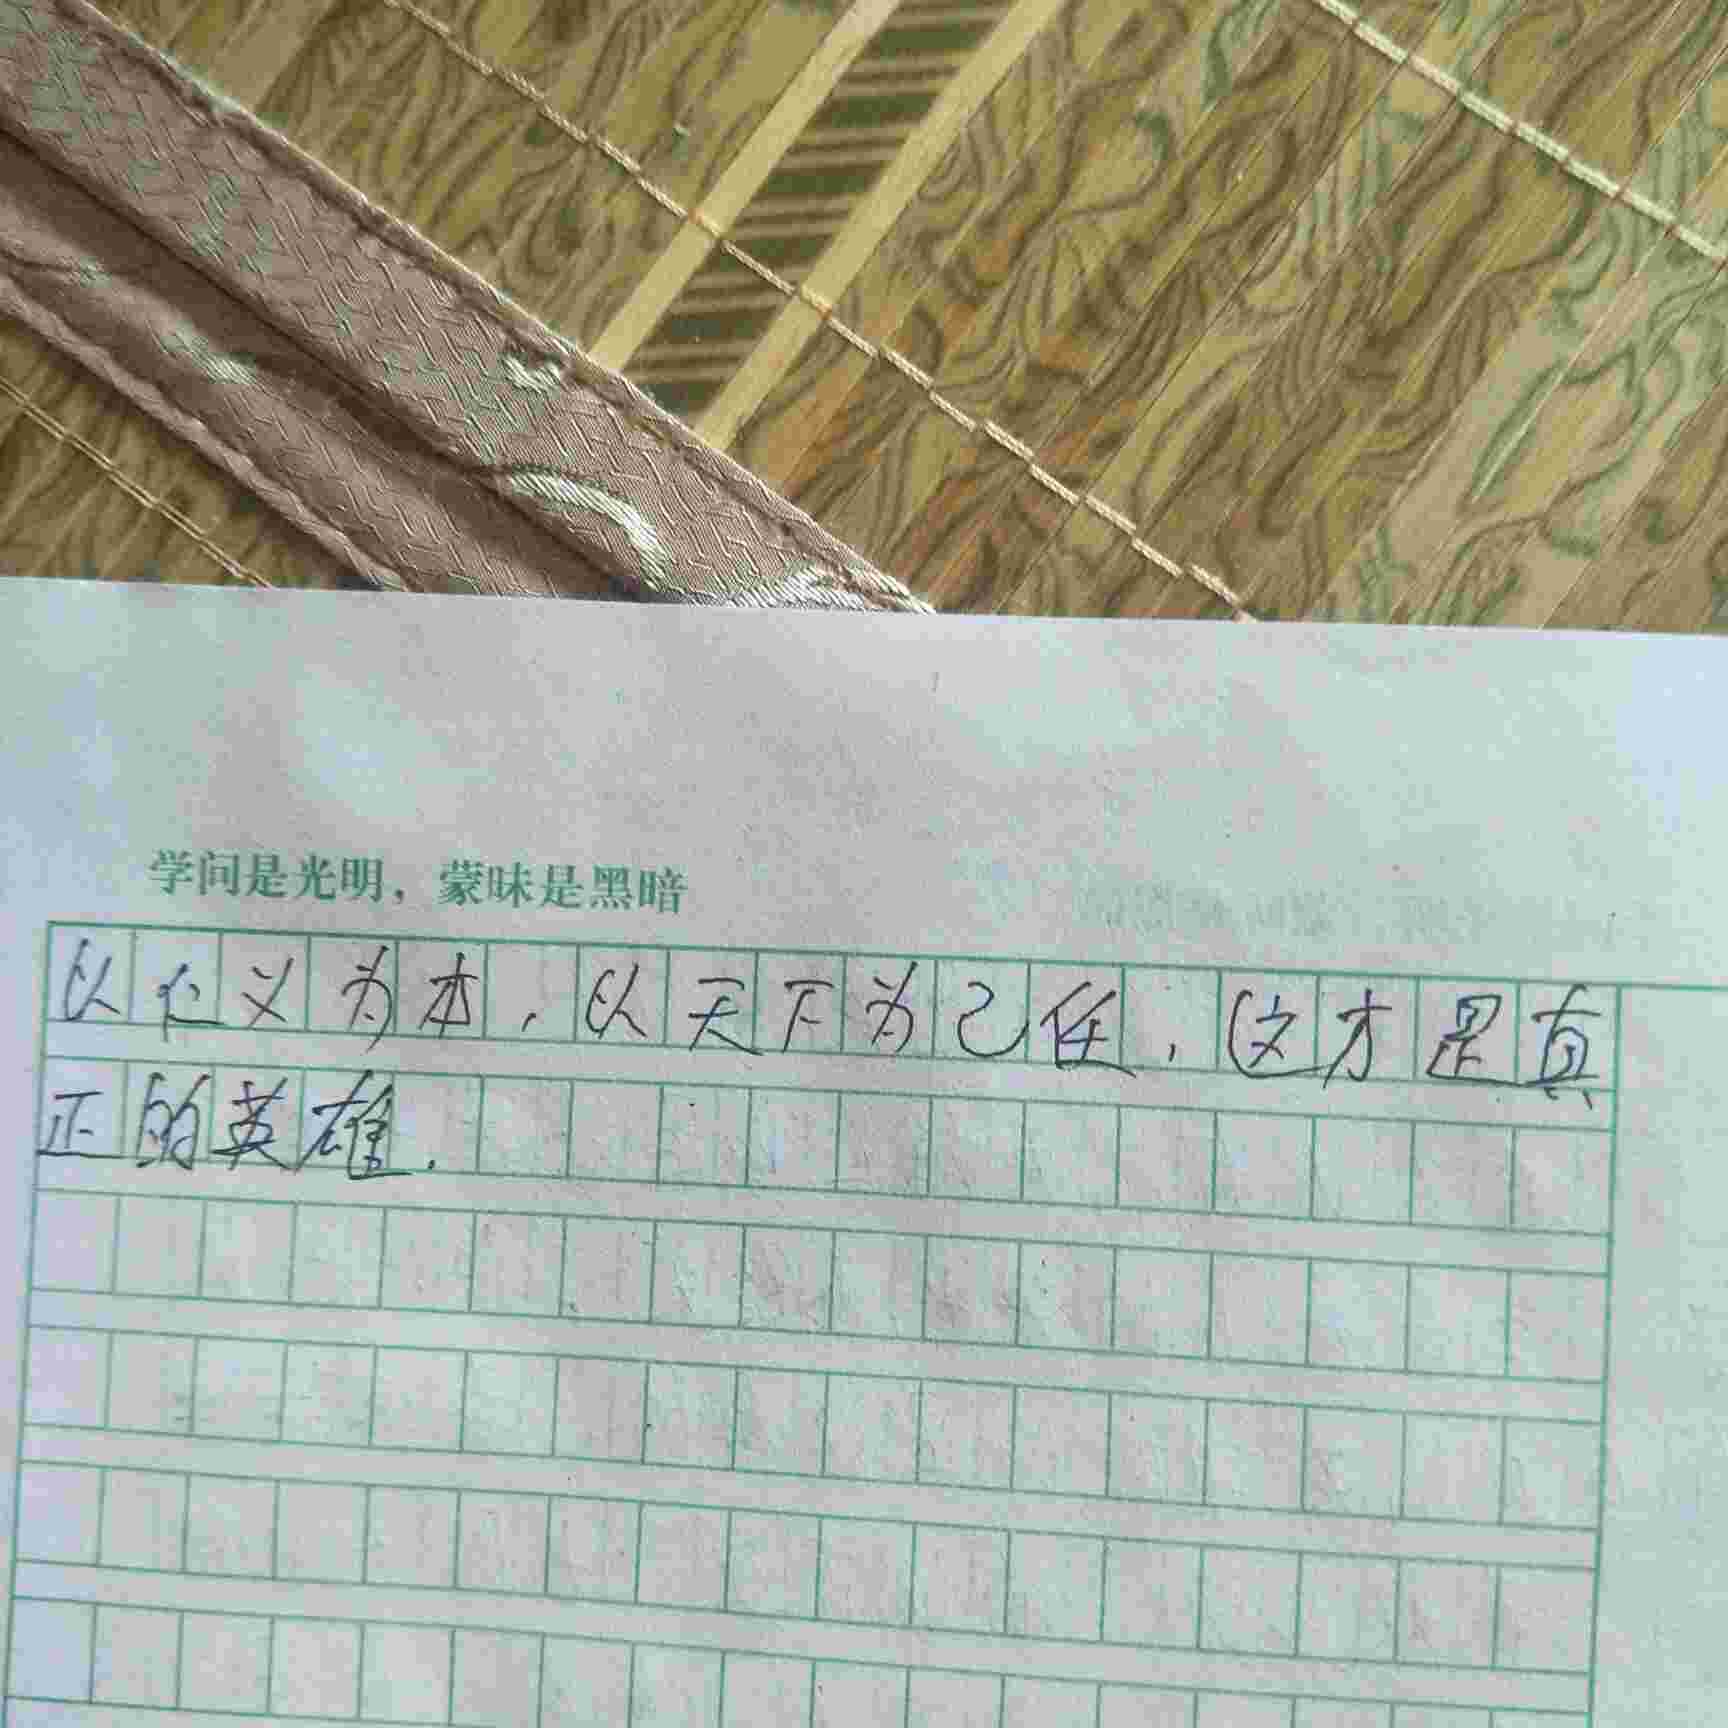 学问是光明，蒙昧是黑暗
以仁义为本，以天下为己任，这才是真
正的英雄.